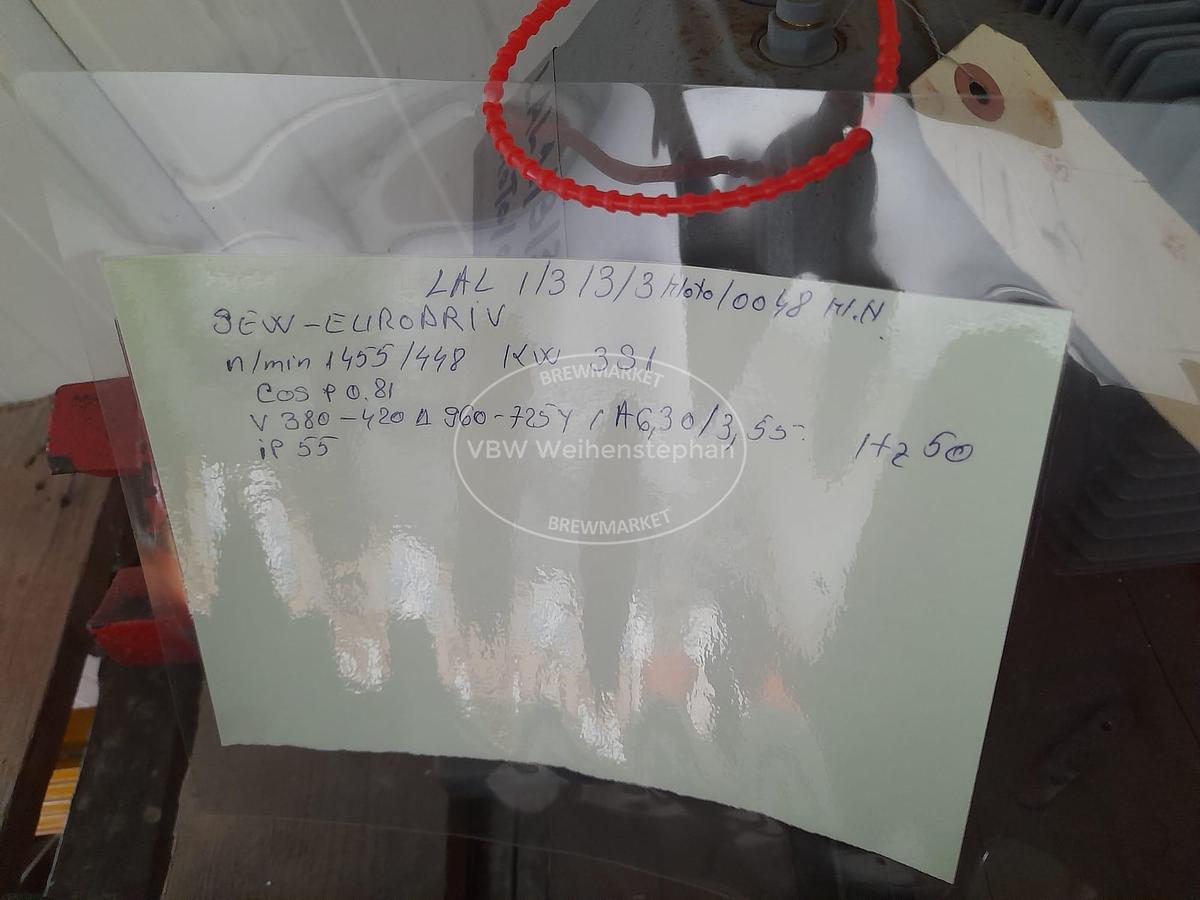 LAL 1/3/3/3 Moto/0048 M.N
SEW-EURODRIV
n/min 1455/448 KW 3S1
Cos φ 0.81
V 380-420 Δ 960-725Y / A 6,30/3,55-
Hz 50
iP 55
BREWMARKET
VBW Weihenstephan
BREWMARKET